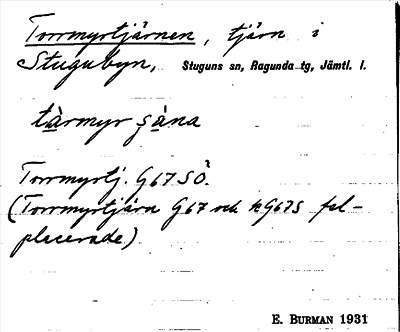 Torrmyrtjärnen, tjärn i
Stugubyn, Stuguns sn, Ragunda tg, Jämtl. l.
tàrmyr şàna
Torrmyrtj. G67SÖ.
(Torrmyrtjärn G67 och kG67S fel-
placerade)
E. BURMAN 1931